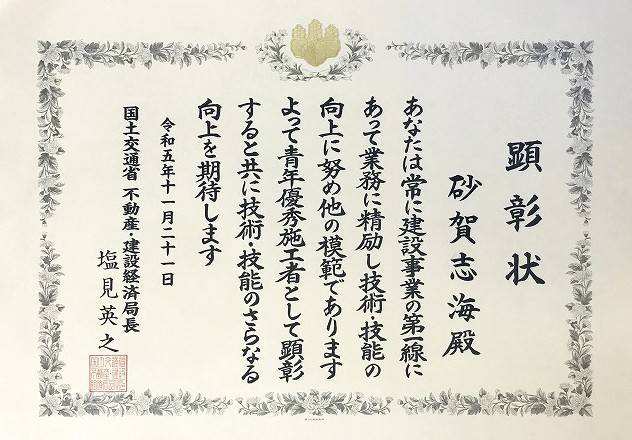 顕彰状
砂賀志海殿
あなたは常に建設事業の第一線に
あって業務に精励し技術・技能の
向上に努め他の模範であります
よって青年優秀施工者として顕彰
すると共に技術・技能のさらなる
向上を期待します
令和五年十一月二十一日
国土交通省 不動産・建設経済局長
塩見英之